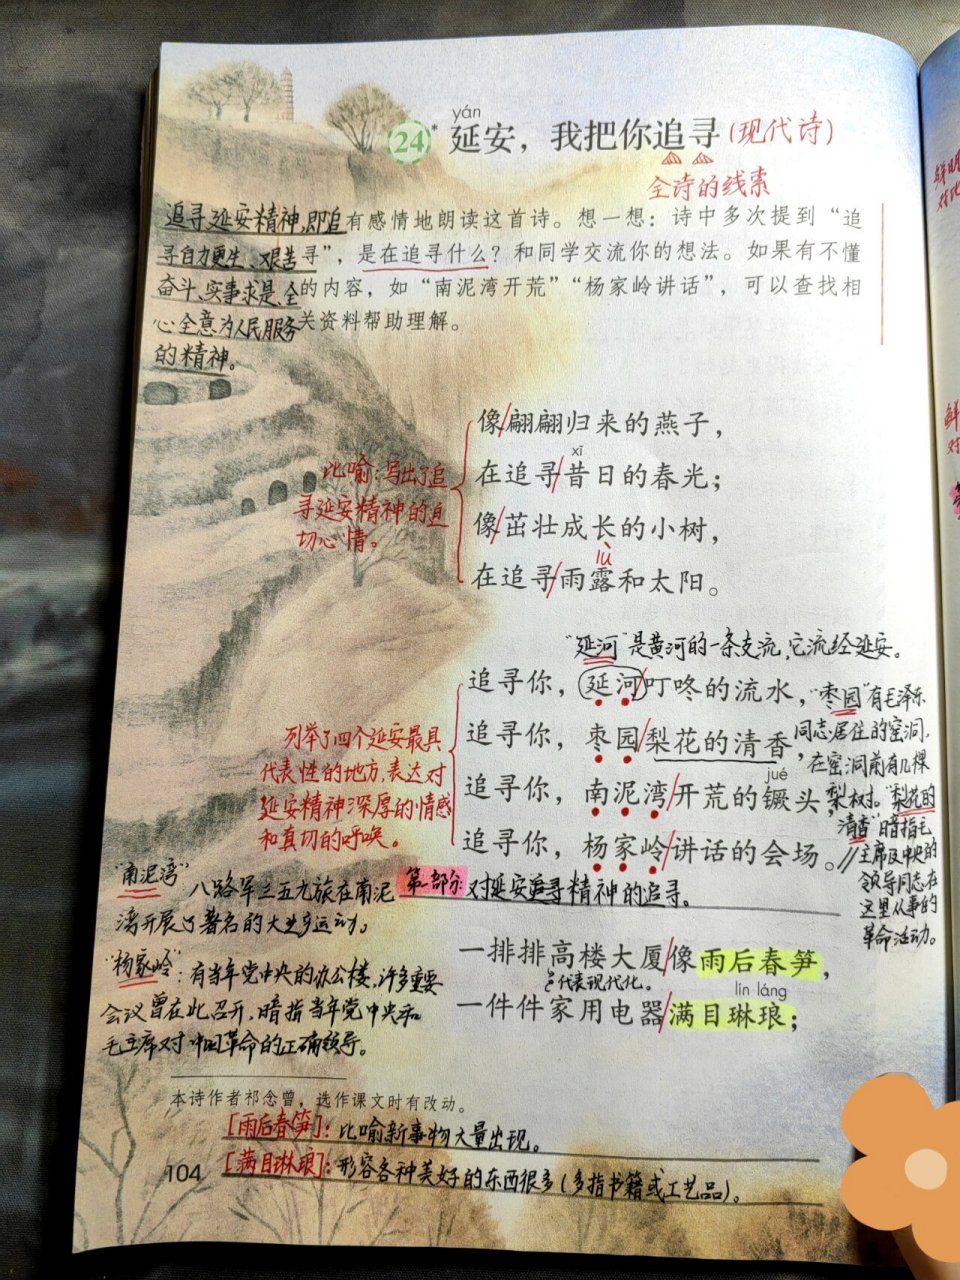 yán
24* 延安，我把你追寻(现代诗)
全诗的线索
追寻延安精神,即追
寻自力更生、艰苦
奋斗、实事求是、全
心全意为人民服务
的精神。
有感情地朗读这首诗。想一想：诗中多次提到“追
寻”，是在追寻什么？和同学交流你的想法。如果有不懂
的内容，如“南泥湾开荒”“杨家岭讲话”，可以查找相
关资料帮助理解。
像/翩翩归来的燕子，
xī
在追寻/昔日的春光；
像/茁壮成长的小树，
lù
在追寻/雨露和太阳。
比喻：写出了追
寻延安精神的迫
切心情。
“延河”是黄河的一条支流，它流经延安。
追寻你，延河/叮咚的流水，
追寻你，枣园/梨花的清香，
jué
追寻你，南泥湾/开荒的镢头，
追寻你，杨家岭/讲话的会场。//
列举了四个延安最具
代表性的地方，表达对
延安精神深厚的情感
和真切的呼唤。
“枣园”有毛泽东
同志居住的窑洞，
在窑洞前有几棵
梨树。“梨花的
清香”暗指毛
主席及中央的
领导同志在
这里从事的
革命活动。
第一部分：对延安追寻精神的追寻。
“南泥湾”
八路军三五九旅在南泥
湾开展了著名的大生产运动。
“杨家岭”：有当年党中央的办公楼，许多重要
会议曾在此召开，暗指当年党中央和
毛主席对中国革命的正确领导。
一排排高楼大厦/像雨后春笋，
代表现代化。
lín láng
一件件家用电器/满目琳琅；
本诗作者祁念曾，选作课文时有改动。
[雨后春笋]：比喻新事物大量出现。
104
[满目琳琅]：形容各种美好的东西很多(多指书籍或工艺品)。